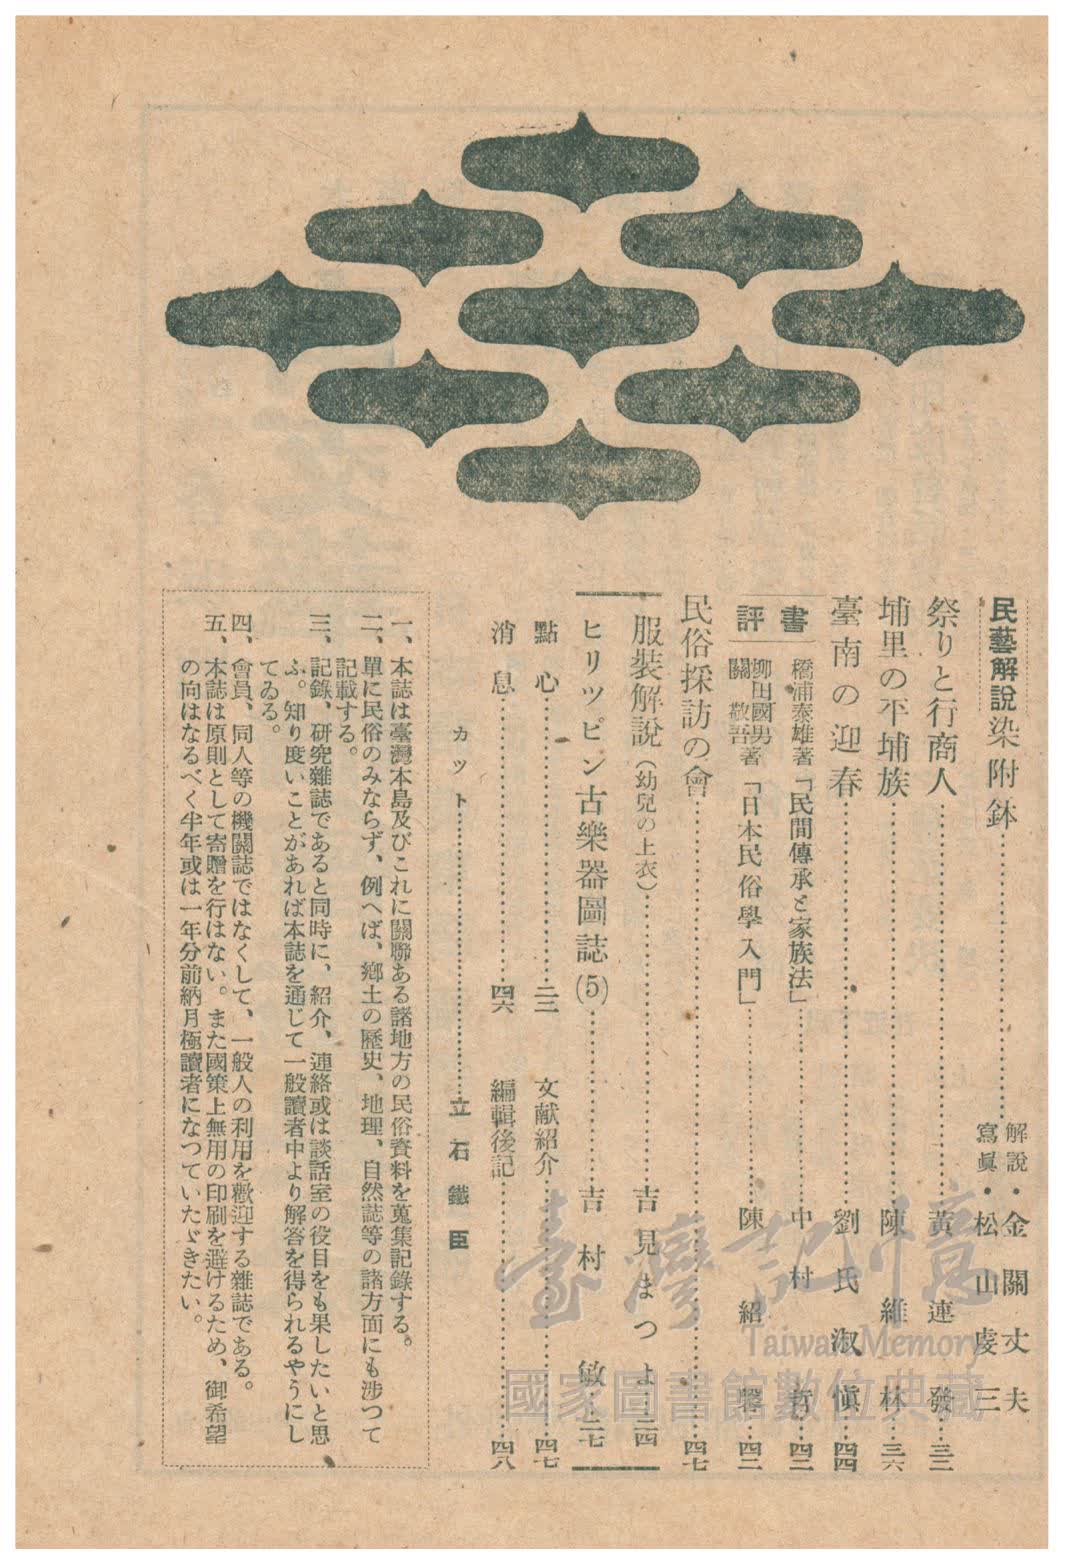 民藝解說 染附鉢……解說・金關丈夫
寫眞・松山虔三
祭りと行商人……黃連發…三二
埔里の平埔族……陳維林…三六
臺南の迎春……劉氏淑愼…四四
書評
橋浦泰雄著「民間傳承と家族法」……中村哲…四二
柳田國男
關敬吾著「日本民俗學入門」……陳紹馨…四二
民俗採訪の會……四七
服裝解說（幼兒の上衣）……吉見まつよ…二四
ヒリツピン古樂器圖誌(5)……吉村敏…二七
點心……二三
文献紹介……四七
消息……四六
編輯後記……四八
カット……立石鐵臣
一、本誌は臺灣本島及びこれに關聯ある諸地方の民俗資料を蒐集記錄する。
二、單に民俗のみならず、例へば、鄉土の歷史、地理、自然誌等の諸方面にも涉つて
記載する。
三、記錄、研究雜誌であると同時に、紹介、連絡或は談話室の役目をも果したいと思
ふ。知り度いことがあれば本誌を通じて一般讀者中より解答を得られるやうにし
てゐる。
四、會員、同人等の機關誌ではなくして、一般人の利用を歡迎する雜誌である。
五、本誌は原則として寄贈を行はない。また國策上無用の印刷を避けるため、御希望
の向はなるべく半年或は一年分前納月極讀者になつていたゞきたい。
臺灣記憶
Taiwan Memory
國家圖書館數位典藏